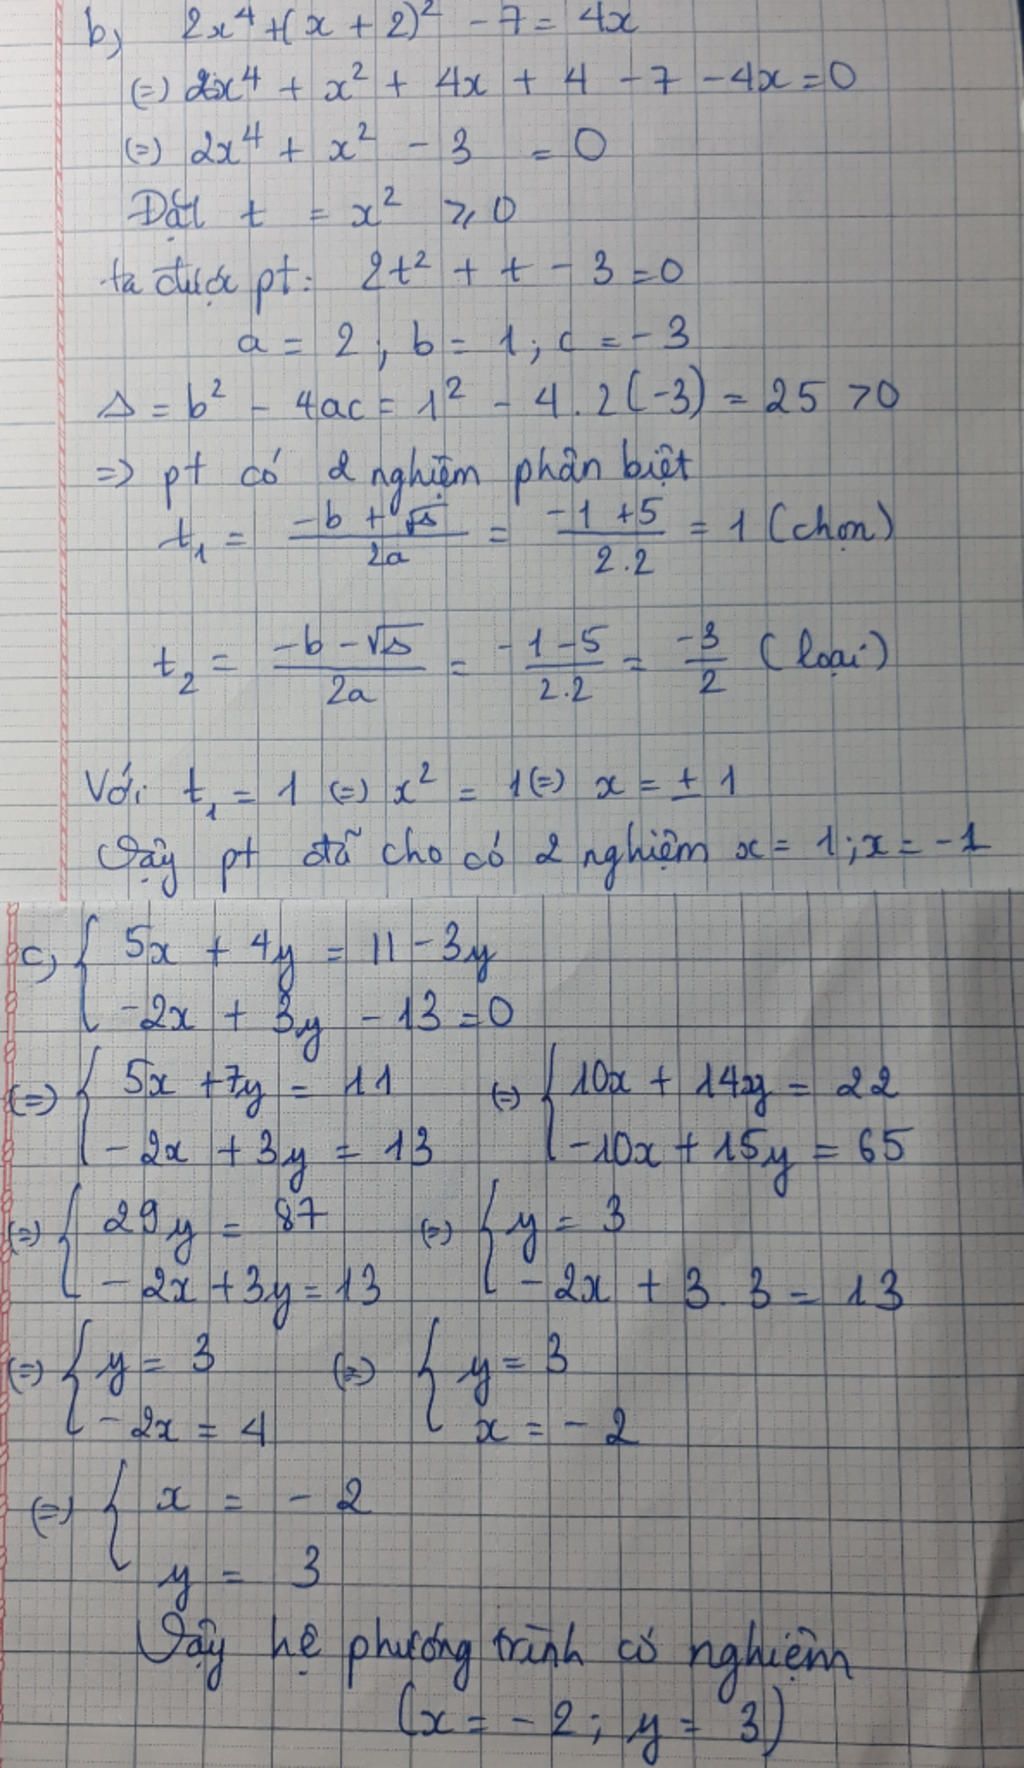 b) 2x⁴ + (x + 2)² - 7 = 4x
(=) 2x⁴ + x² + 4x + 4 - 7 - 4x = 0
(=) 2x⁴ + x² - 3 = 0
Đặt t = x² ⩾ 0
ta được pt: 2t² + t - 3 = 0
a = 2, b = 1; c = -3
Δ = b² - 4ac = 1² - 4.2(-3) = 25 > 0
=> pt có 2 nghiệm phân biệt
t₁ = (-b + √Δ)/(2a) = (-1 + 5)/(2.2) = 1 (chọn)
t₂ = (-b - √Δ)/(2a) = (-1 - 5)/(2.2) = -3/2 (loại)
Với t₁ = 1 (=) x² = 1 (=) x = ± 1
Vậy pt đã cho có 2 nghiệm x = 1; x = -1
c) { 5x + 4y = 11 - 3y
-2x + 3y - 13 = 0
(=) { 5x + 7y = 11 (=) { 10x + 14y = 22
-2x + 3y = 13 -10x + 15y = 65
(=) { 29y = 87 (=) { y = 3
-2x + 3y = 13 -2x + 3.3 = 13
(=) { y = 3 (=) { y = 3
-2x = 4 x = -2
(=) { x = -2
y = 3
Vậy hệ phương trình có nghiệm
(x = -2; y = 3)